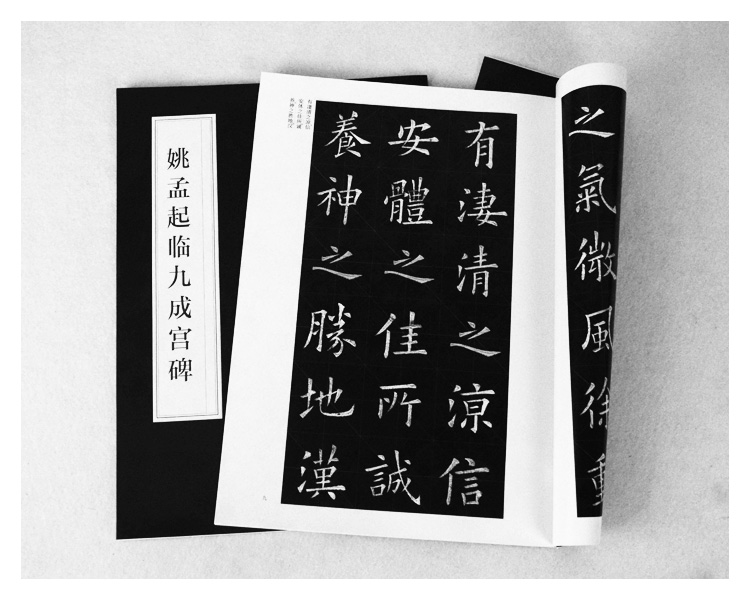 姚孟起临九成宫碑
之氣微風徐動
有淒清之涼信
安體之佳所誠
養神之勝地漢